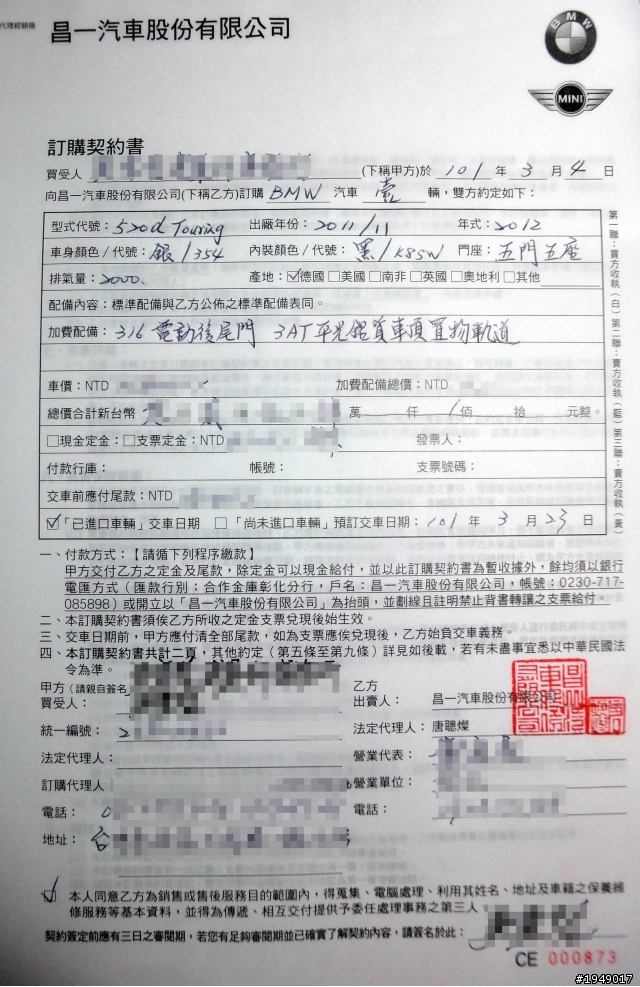 代理經銷商
昌一汽車股份有限公司
BMW
MINI
訂購契約書
買受人 (下稱甲方)於 101 年 3 月 4 日
向昌一汽車股份有限公司(下稱乙方)訂購 BMW 汽車 壹 輛，雙方約定如下：
型式代號：520d Touring 出廠年份：2011/11 年式：2012
車身顏色/代號：銀/354 內裝顏色/代號：黑/K8SW 門座：五門五座
排氣量：2000. 產地：☑德國□美國□南非□英國□奧地利□其他
配備內容：標準配備與乙方公佈之標準配備表同。
加費配備：316 電動後尾門 3AT 平光鋁質車頂置物軌道
車價：NTD 加費配備總價：NTD
總價合計新台幣 萬 仟 佰 拾 元整。
□現金定金：□支票定金：NTD 發票人：
付款行庫： 帳號： 支票號碼：
交車前應付尾款：NTD
☑「已進口車輛」交車日期 □「尚未進口車輛」預訂交車日期：101 年 3 月 23 日
第一聯：買方收執(白) 第二聯：賣方收執(藍) 第三聯：賣方收執(黃)
一、付款方式：【請循下列程序繳款】
甲方交付乙方之定金及尾款，除定金可以現金給付，並以此訂購契約書為暫收據外，餘均須以銀行
電匯方式（匯款行別：合作金庫彰化分行，戶名：昌一汽車股份有限公司，帳號：0230-717-
085898）或開立以「昌一汽車股份有限公司」為抬頭，並劃線且註明禁止背書轉讓之支票給付。
二、本訂購契約書須俟乙方所收之定金支票兌現後始生效。
三、交車日期前，甲方應付清全部尾款，如為支票應俟兌現後，乙方始負交車義務。
四、本訂購契約書共計二頁，其他約定（第五條至第九條）詳見如後載，若有未盡事宜悉以中華民國法
令為準。
甲方(請親自簽名)
買受人：
統一編號：
法定代理人：
訂購代理人
電話：
地址：
乙方
出賣人： 昌一汽車股份有限公司
法定代理人：唐聰燦
營業代表：
營業單位：
電話：
☑ 本人同意乙方為銷售或售後服務目的範圍內，得蒐集、電腦處理、利用其姓名、地址及車籍之保養維
修服務等基本資料，並得為傳遞、相互交付提供予委任處理事務之第三人
契約簽定前應有三日之審閱期，若您有足夠審閱期並已確實了解契約內容，請簽名於此：
CE 000873
#1949017